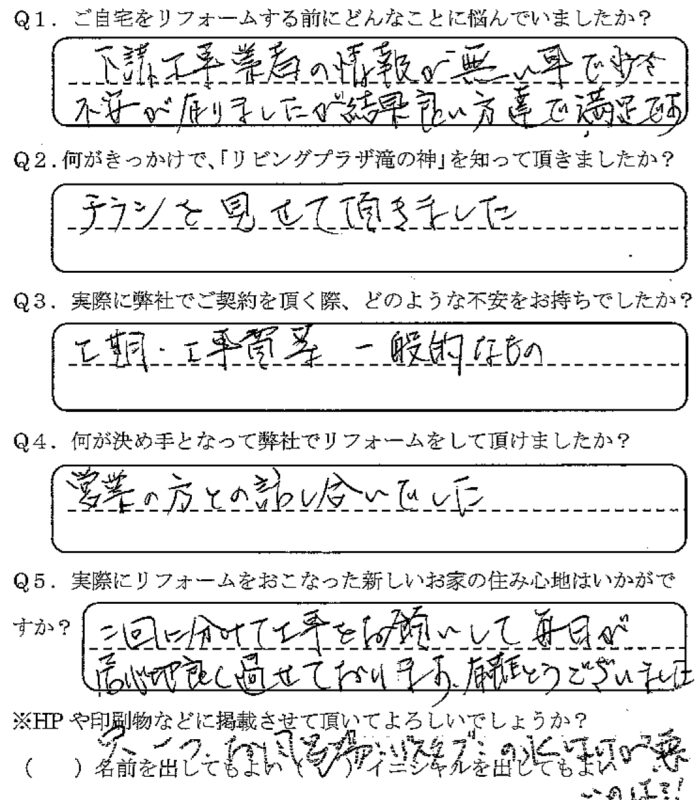 Q1．ご自宅をリフォームする前にどんなことに悩んでいましたか？
下請工事業者の情報が無い事で少々
不安が有りましたが結果良い方達で満足です
Q2．何がきっかけで、「リビングプラザ滝の神」を知って頂きましたか？
チラシを見せて頂きました
Q3．実際に弊社でご契約を頂く際、どのような不安をお持ちでしたか？
工期・工事費等 一般的なもの
Q4．何が決め手となって弊社でリフォームをして頂けましたか？
営業の方との話し合いでした
Q5．実際にリフォームをおこなった新しいお家の住み心地はいかがで
すか？
二回に分けて工事をお願いして毎日が
居心地良く過せております。有難とうございました
※HPや印刷物などに掲載させて頂いてよろしいでしょうか？
（ ）名前を出してもよい（ ）イニシャルを出してもよい